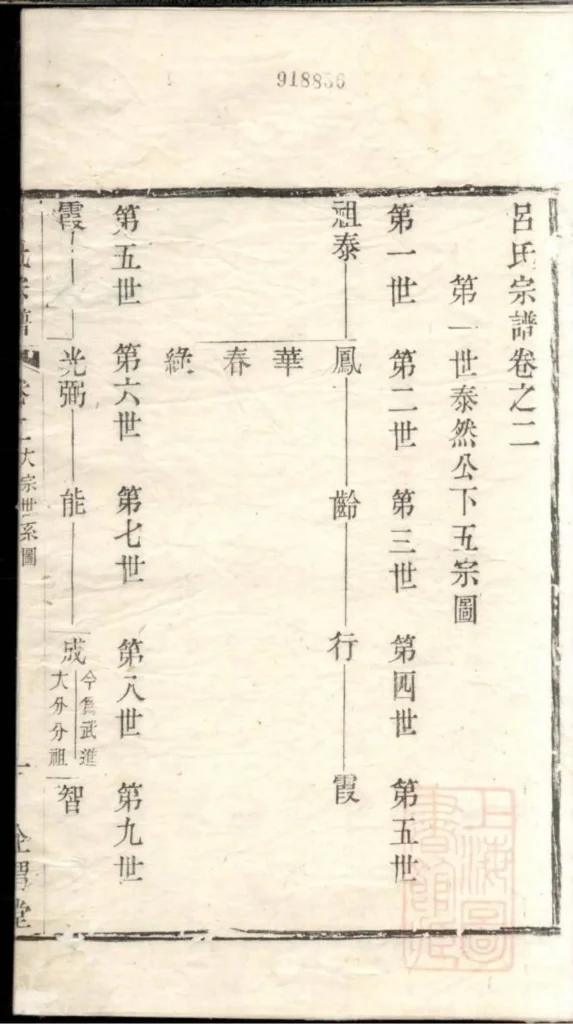 918856
呂氏宗譜卷之二
第一世泰然公下五宗圖
第一世 第二世 第三世 第四世 第五世
祖泰 鳳 齡 行 霞
華
春
綠
第五世 第六世 第七世 第八世 第九世
霞 光弼 能 成 今爲武進大分分祖 智
氏宗譜 卷二 大宗世系圖 一
上海圖書館藏